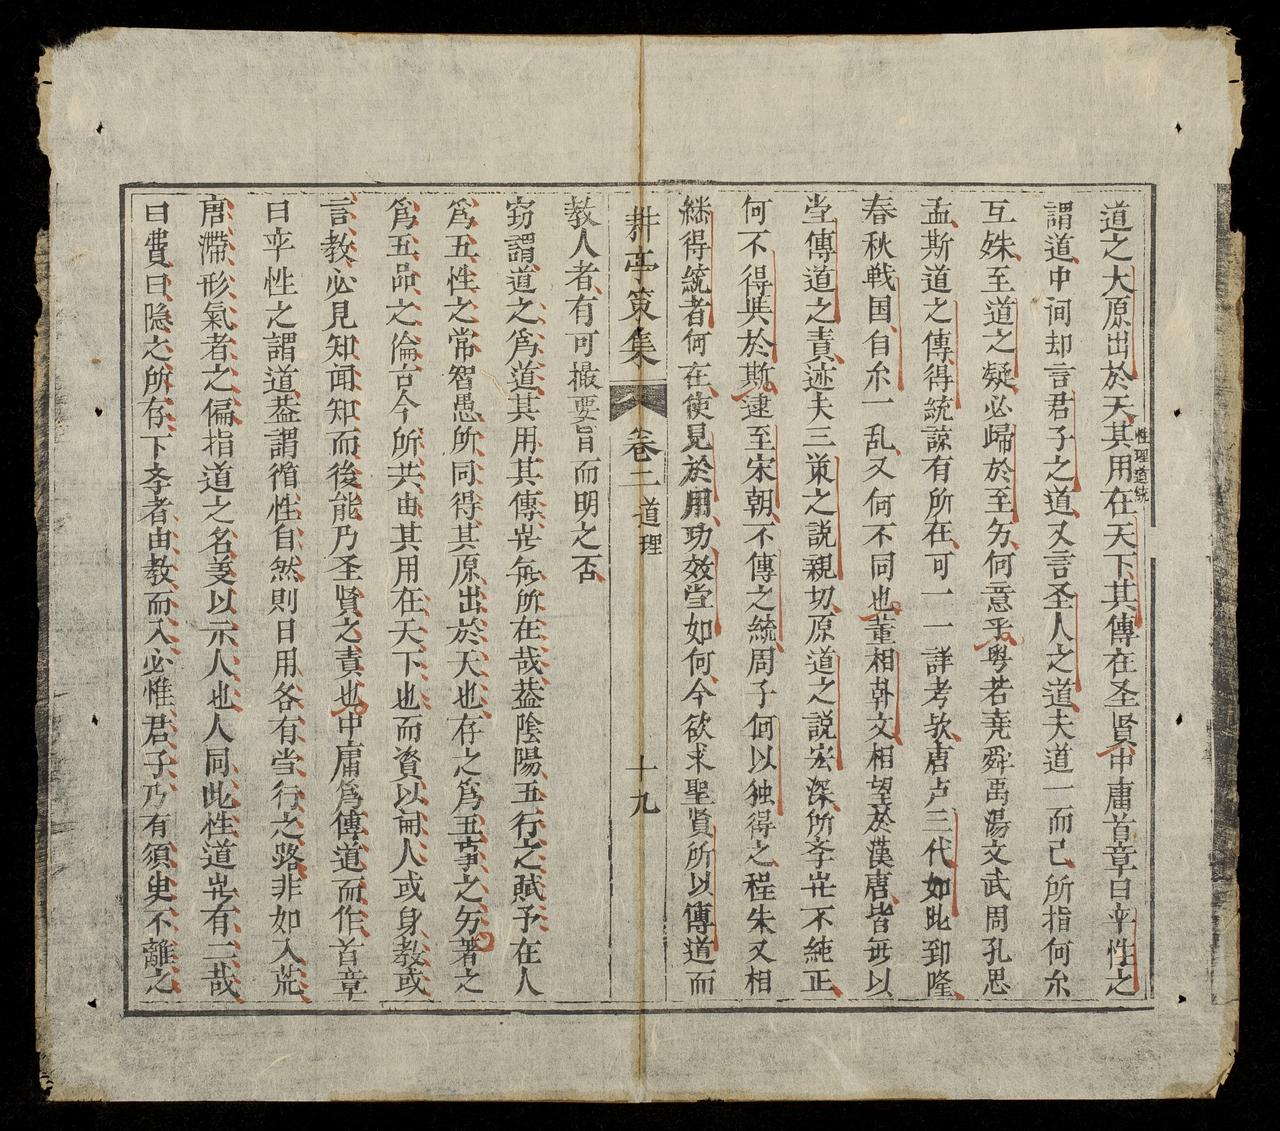 道之大原出於天其用在天下其傳在圣賢中庸首章曰卛性之
性理道統
謂道中间却言君子之道又言圣人之道夫道一而已所指何尒
互姝至道之疑必歸於至㔫何意乎粤若尭舜禹湯文武周孔思
孟斯道之傳得統諒有所在可一一詳考欤唐卢三代如此郅隆
春秋戦国自尒一乱又何不同也董相斡文相望於漢唐皆毎以
堂傳道之責迹夫三策之説親切原道之説宏深所孝岂不純正
何不得與於斯逮至宋朝不傳之統周子何以独得之程朱又相
継得統者何在使見於用功效堂如何今欲求聖賢所以傳道而
耕亭策集 卷二 道理 十九
教人者有可撮要旨而明之否
窃謂道之爲道其用其傳岂無所在哉葢陰陽五行之賦予在人
爲五性之常智愚所同得其原出於天也存之爲五事之㔫著之
爲五品之倫古今所共由其用在天下也而資以𫔭人或身教或
言教必見知闻知而後能乃圣賢之責也中庸爲傳道而作首章
曰卛性之謂道葢謂循性自然則日用各有当行之路非如入荒
唐滯形氣者之偏指道之名義以示人也人同此性道岂有二哉
曰費曰隐之所存下孝者由教而入必惟君子乃有須臾不離之